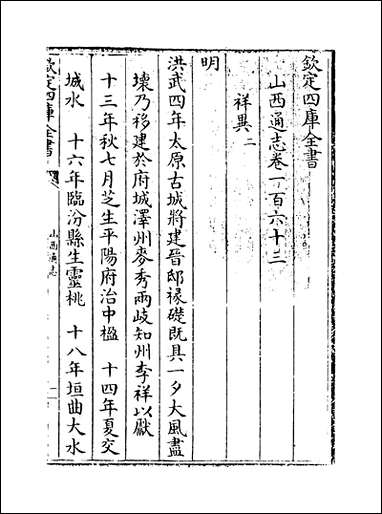 欽定四庫全書
山西通志卷一百六十三
祥異二
明
洪武四年太原古城將建晉邸祿礎既具一夕大風盡
壞乃移建於府城澤州麥秀兩岐知州李祥以獻
十三年秋七月芝生平陽府治中楹　十四年夏交
城水　十六年臨汾縣生靈桃　十八年垣曲大水
欽定四庫全書
山西通志